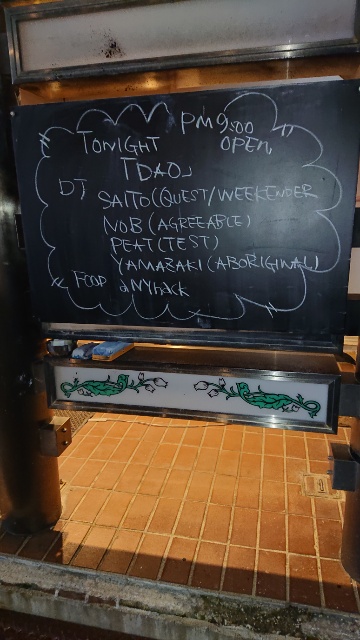 PM 9:00
TONIGHT OPEN
TDAO
DJ SAITO (QUEST/WEEKENDER
NOB (AGREEABLE)
PEAT (TEST)
YAMAZAKI (ABORIGINAL)
FOOD aNYhack